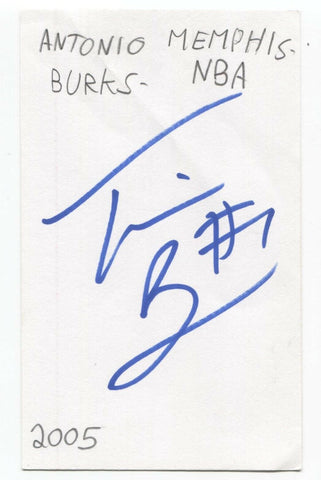 ANTONIO MEMPHIS-
BURKS- NBA
#1
2005